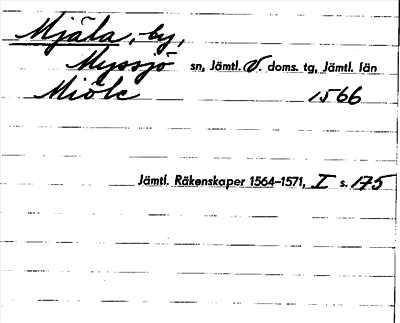 Mjäla, by,
Myssjö sn, Jämtl. V. doms. tg, Jämtl. län
Miöle 1566
Jämtl. Räkenskaper 1564–1571, I s. 175